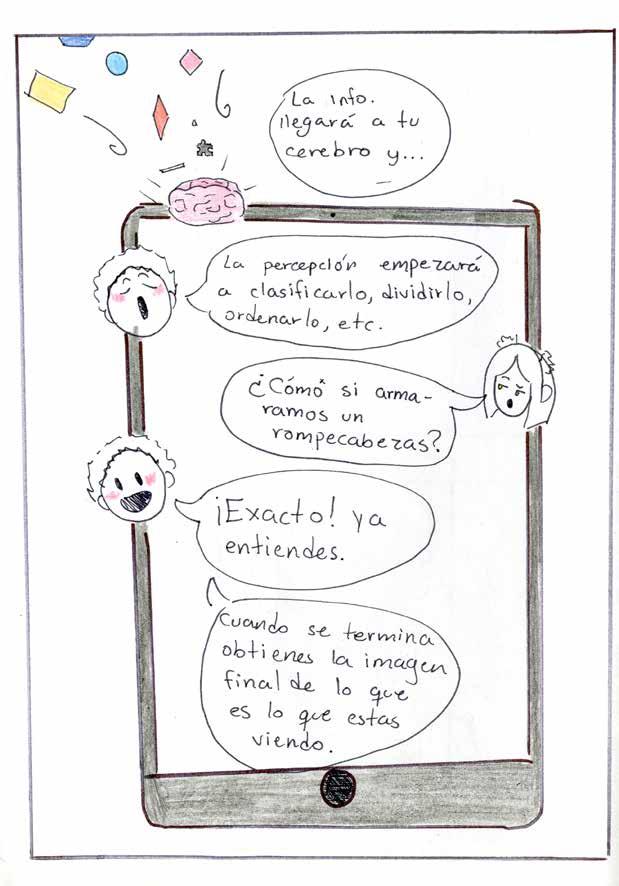 La info.
llegará a tu
cerebro y...
La percepción empezará
a clasificarlo, dividirlo,
ordenarlo, etc.
¿Cómo si arma-
ramos un
rompecabezas?
¡Exacto! ya
entiendes.
Cuando se termina
obtienes la imagen
final de lo que
es lo que estas
viendo.